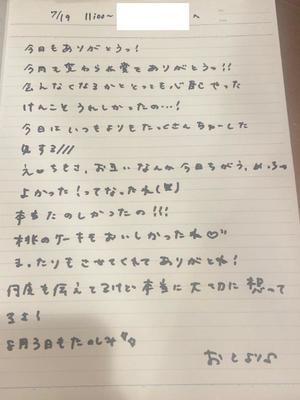 7/19 11:00～ へ
今日もありがとうっ!
今月で変わらぬ愛をありがとうっ!!
会えなくなるかととっても心配やった
けんことうれしかったの…!
今日はいつもよりもたっくさんちゅーした
気する///
えっちもさ、お互いなんか今日ちがう、めっちゃ
よかった!ってなったね
本当たのしかったの!!!
桃のケーキもおいしかったね♡
まったりもさせてくれてありがとね!
何度も伝えてるけど本当に大切に想って
るよ!
8月3日もたのしみ
おとより